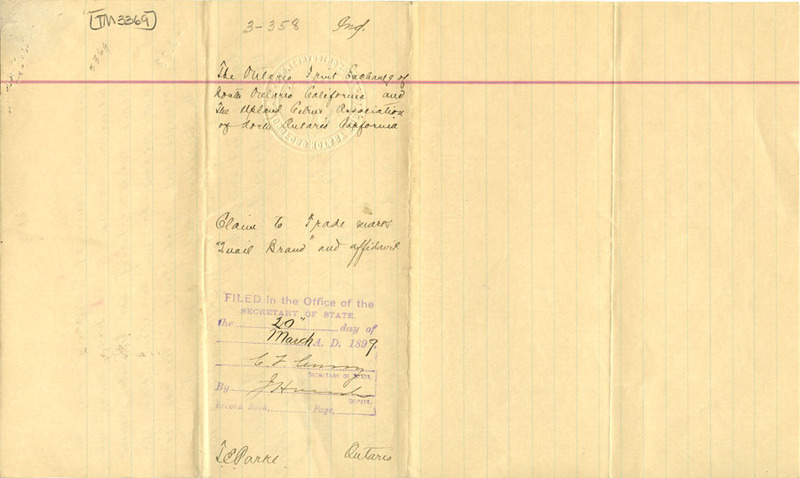 [TM3369]
3369
3-358 Ind.
The Ontario Fruit Exchange of
North Ontario California and
The Upland Citrus Association
of North Ontario California
Claim to Trade mark
"Quail Brand" and affidavit
FILED in the Office of the
SECRETARY OF STATE.
the 20" day of
March A. D. 1899
C. F. Curry
SECRETARY OF STATE.
By J Hoesch
DEPUTY.
Record Book Page
Ontario